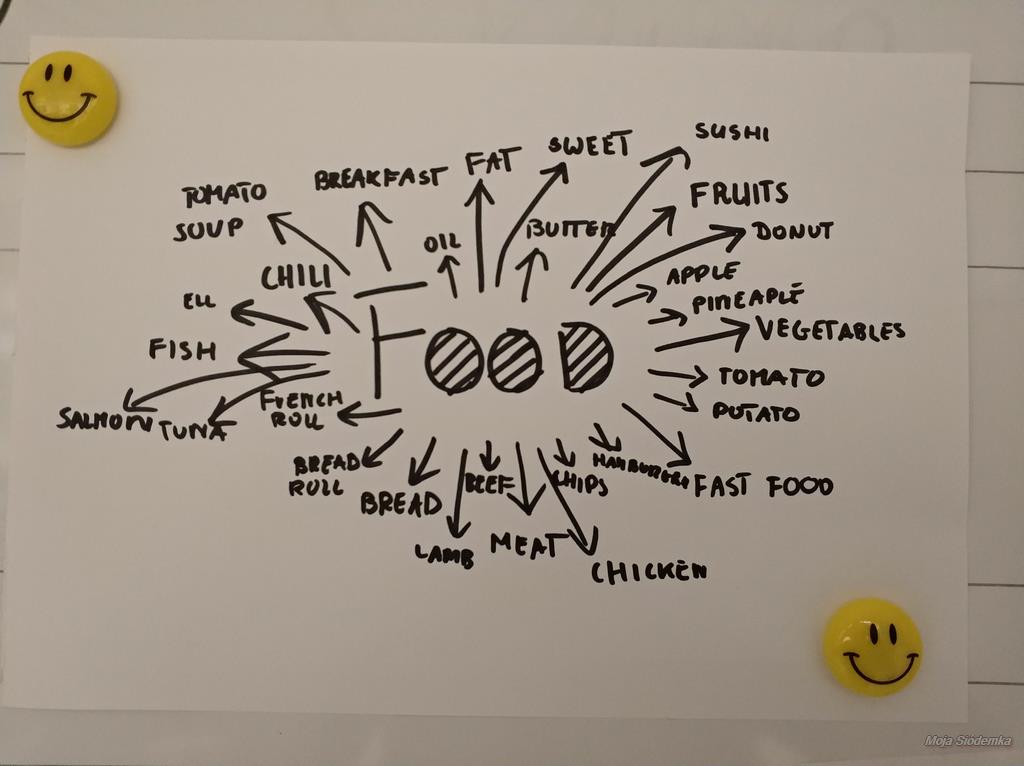 SUSHI
SWEET
FAT
BREAKFAST
TOMATO
SOUP
FRUITS
DONUT
BUTTER
OIL
CHILI
APPLE
PINEAPLE
ELL
VEGETABLES
FISH
FOOD
TOMATO
POTATO
FRENCH
ROLL
SALMON
TUNA
BREAD
ROLL
BREAD
BEEF
CHIPS
HAMBURGERS
FAST FOOD
LAMB
MEAT
CHICKEN
Moja Siódemka